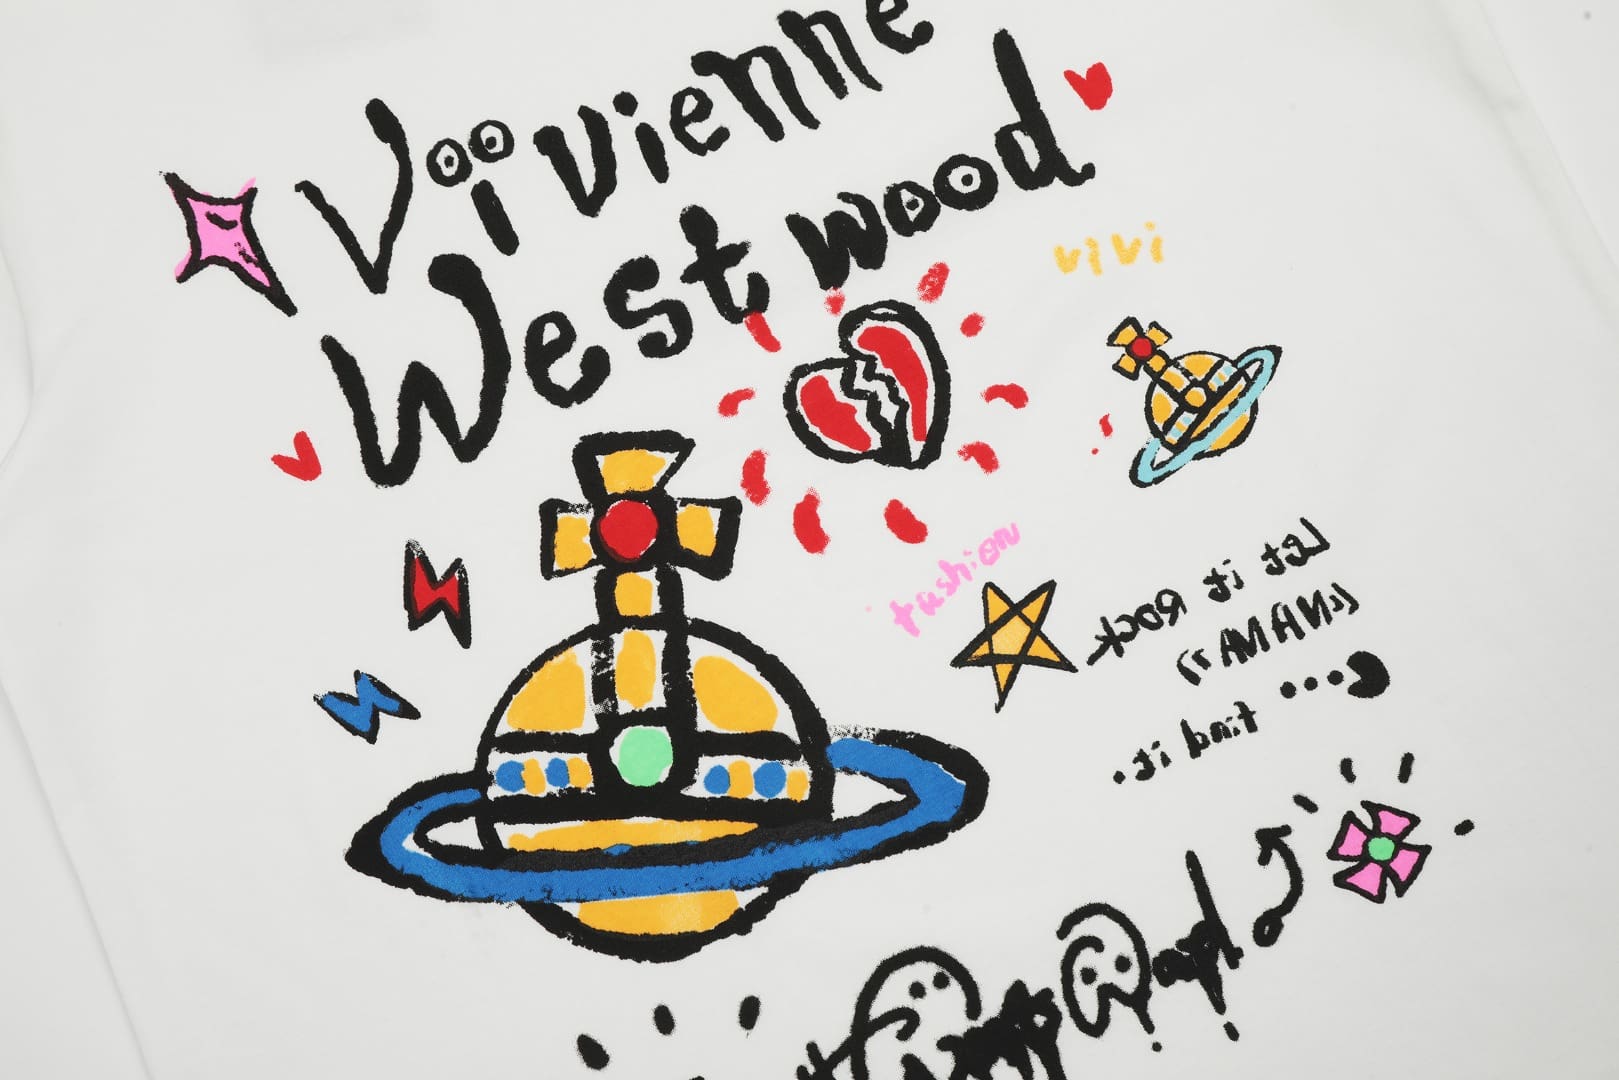 Vivienne
Westwood
vivi
fashion
Let it ROCK
«NANA»
tind it.